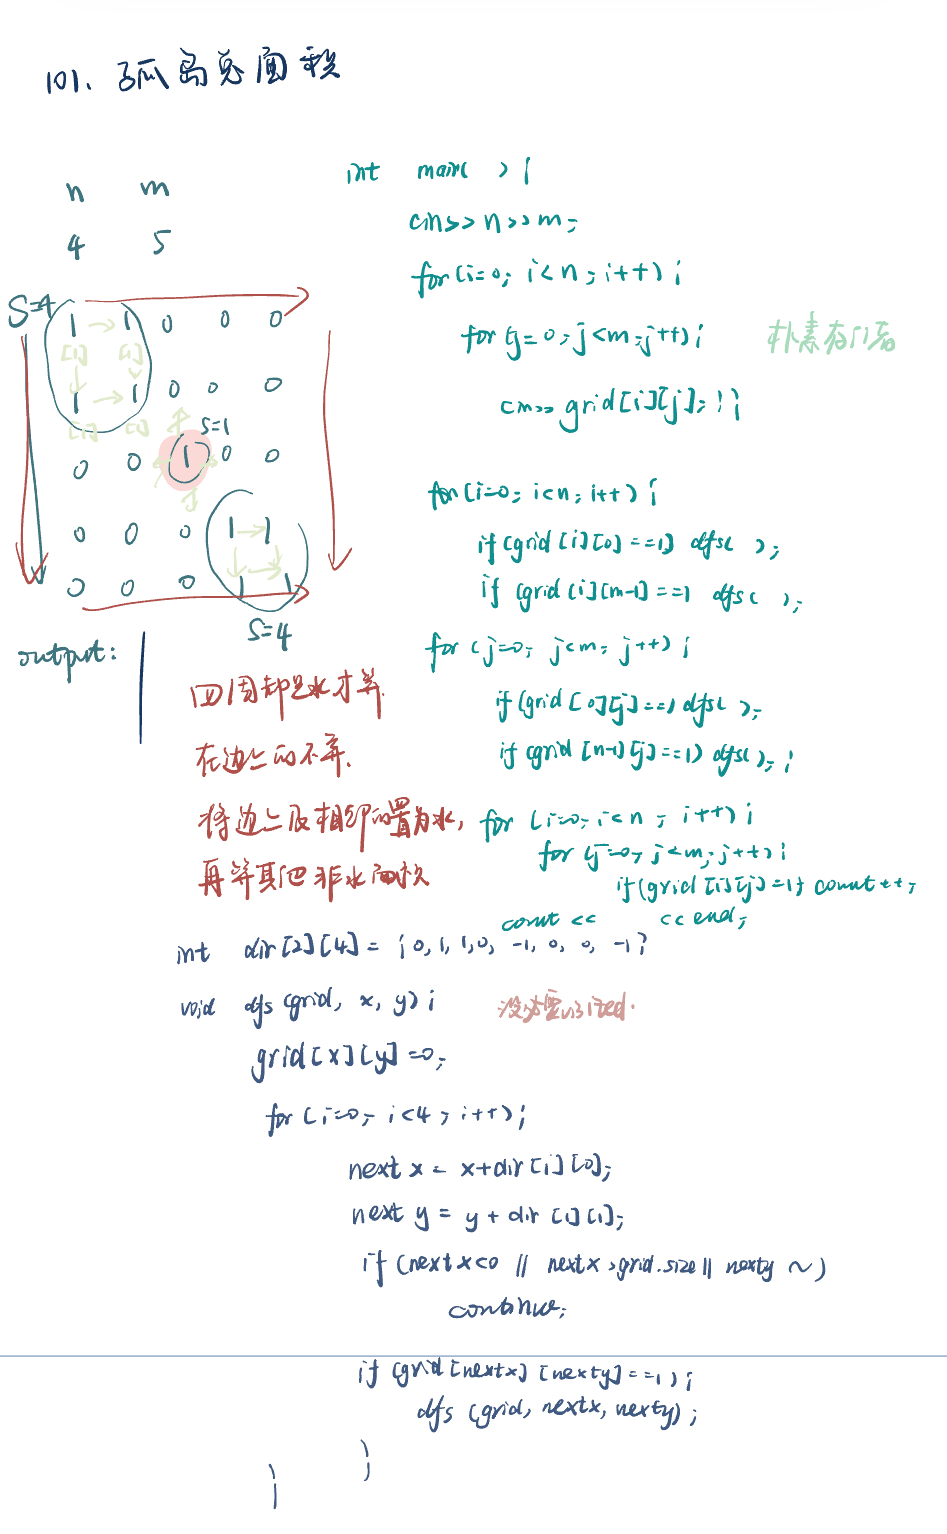 101、孤岛总面积
n m
4 5
S=4
1 → 1 0 0 0
[1] [1]
1 → 1 0 0 0
[1] [1]
S=1
0 0 1 0 0
0 0 0 1 → 1
0 0 0 1 1
S=4
output: 1
四周都是水才算.
在边上的不算.
将边上及相邻的置为水,
再算其他非水面积
int main( ) {
cin>>n>>m;
for(i=0; i<n; i++) {
for(j=0; j<m; j++) {
cin>>grid[i][j]; } }
for(i=0; i<n; i++) {
if(grid[i][0]==1) dfs( );
if(grid[i][m-1]==1 dfs( );
for(j=0; j<m; j++) {
if(grid[0][j]==1) dfs( );
if(grid[n-1][j]==1) dfs( ); }
for(i=0; i<n; i++) {
for(j=0; j<m; j++) {
if(grid[i][j]=1) count++;
count << << end;
int dir[2][4] = {0,1,1,0,-1,0,0,-1}
void dfs(grid, x, y) {
grid[x][y]=0;
for(i=0; i<4; i++) {
next x = x+dir[i][0];
next y = y+dir[i][1];
if(next x<0 || next x>grid.size || next y ~)
continue;
if(grid[next x][next y]==1) {
dfs(grid, next x, next y);
}
}